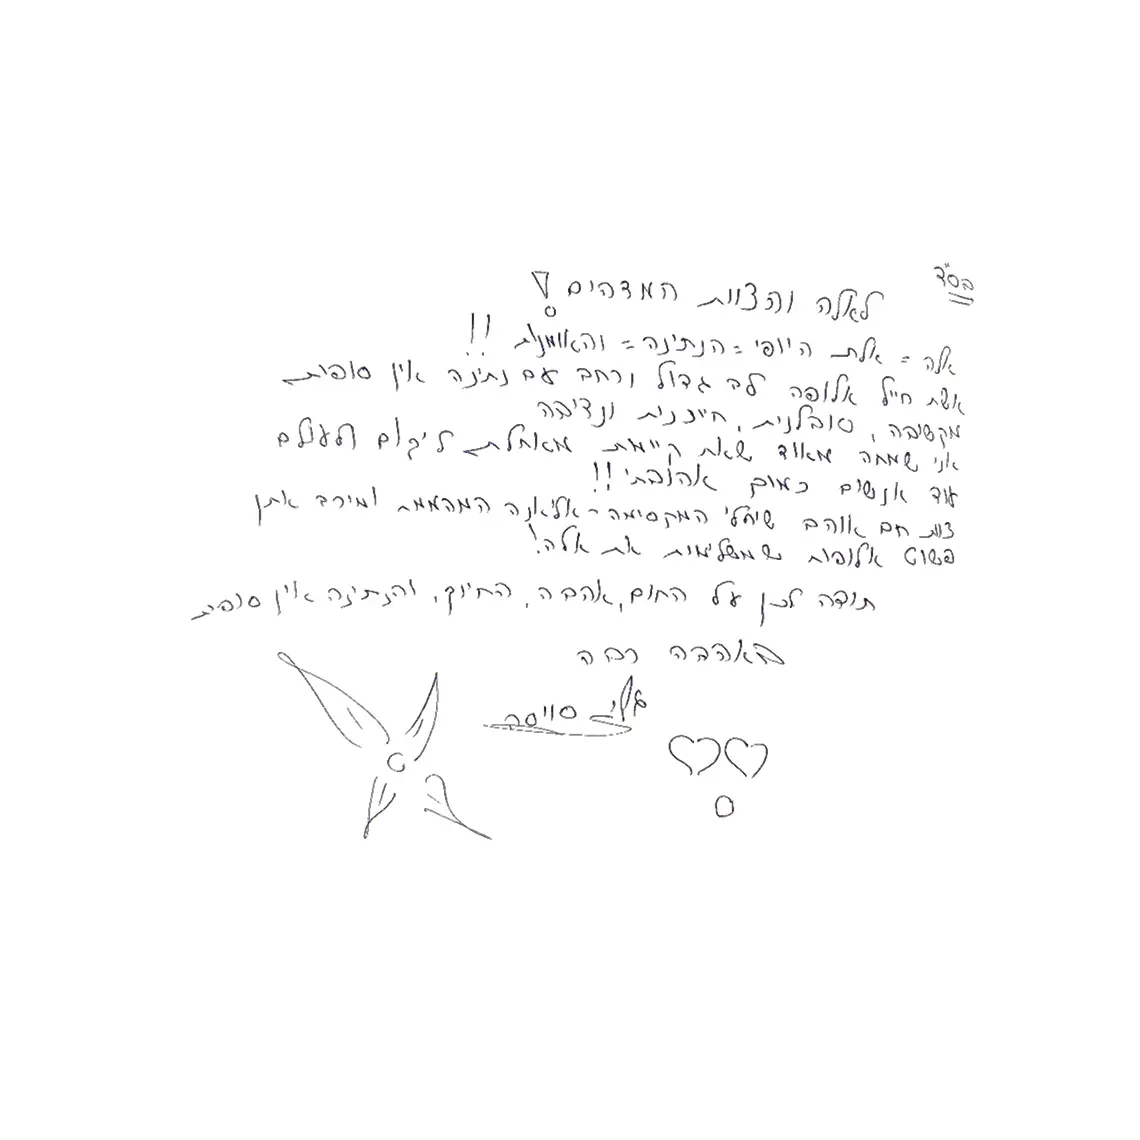 בס"ד
לאלה והצוות המדהים!
אלה = אלת היופי = הנתינה = והאומנות !!
אשת חייל אלופה לב גדול ורחב עם נתינה אין סופית
מקשיבה, סובלנית, חייכנית ונדיבה
אני שמחה מאוד שאת קיימת מאחלת ליקום ולעולם
עוד אנשים כמוך אהובתי!!
צוות חם אוהב שיחלי המקסימה - אליאנה המהממת ומירב אתן
פשוט אלופות שמשלימות את אלה!
תודה לכן על החום, אהבה, החיוך, והנתינה אין סופית
באהבה רבה
גלי סויסה